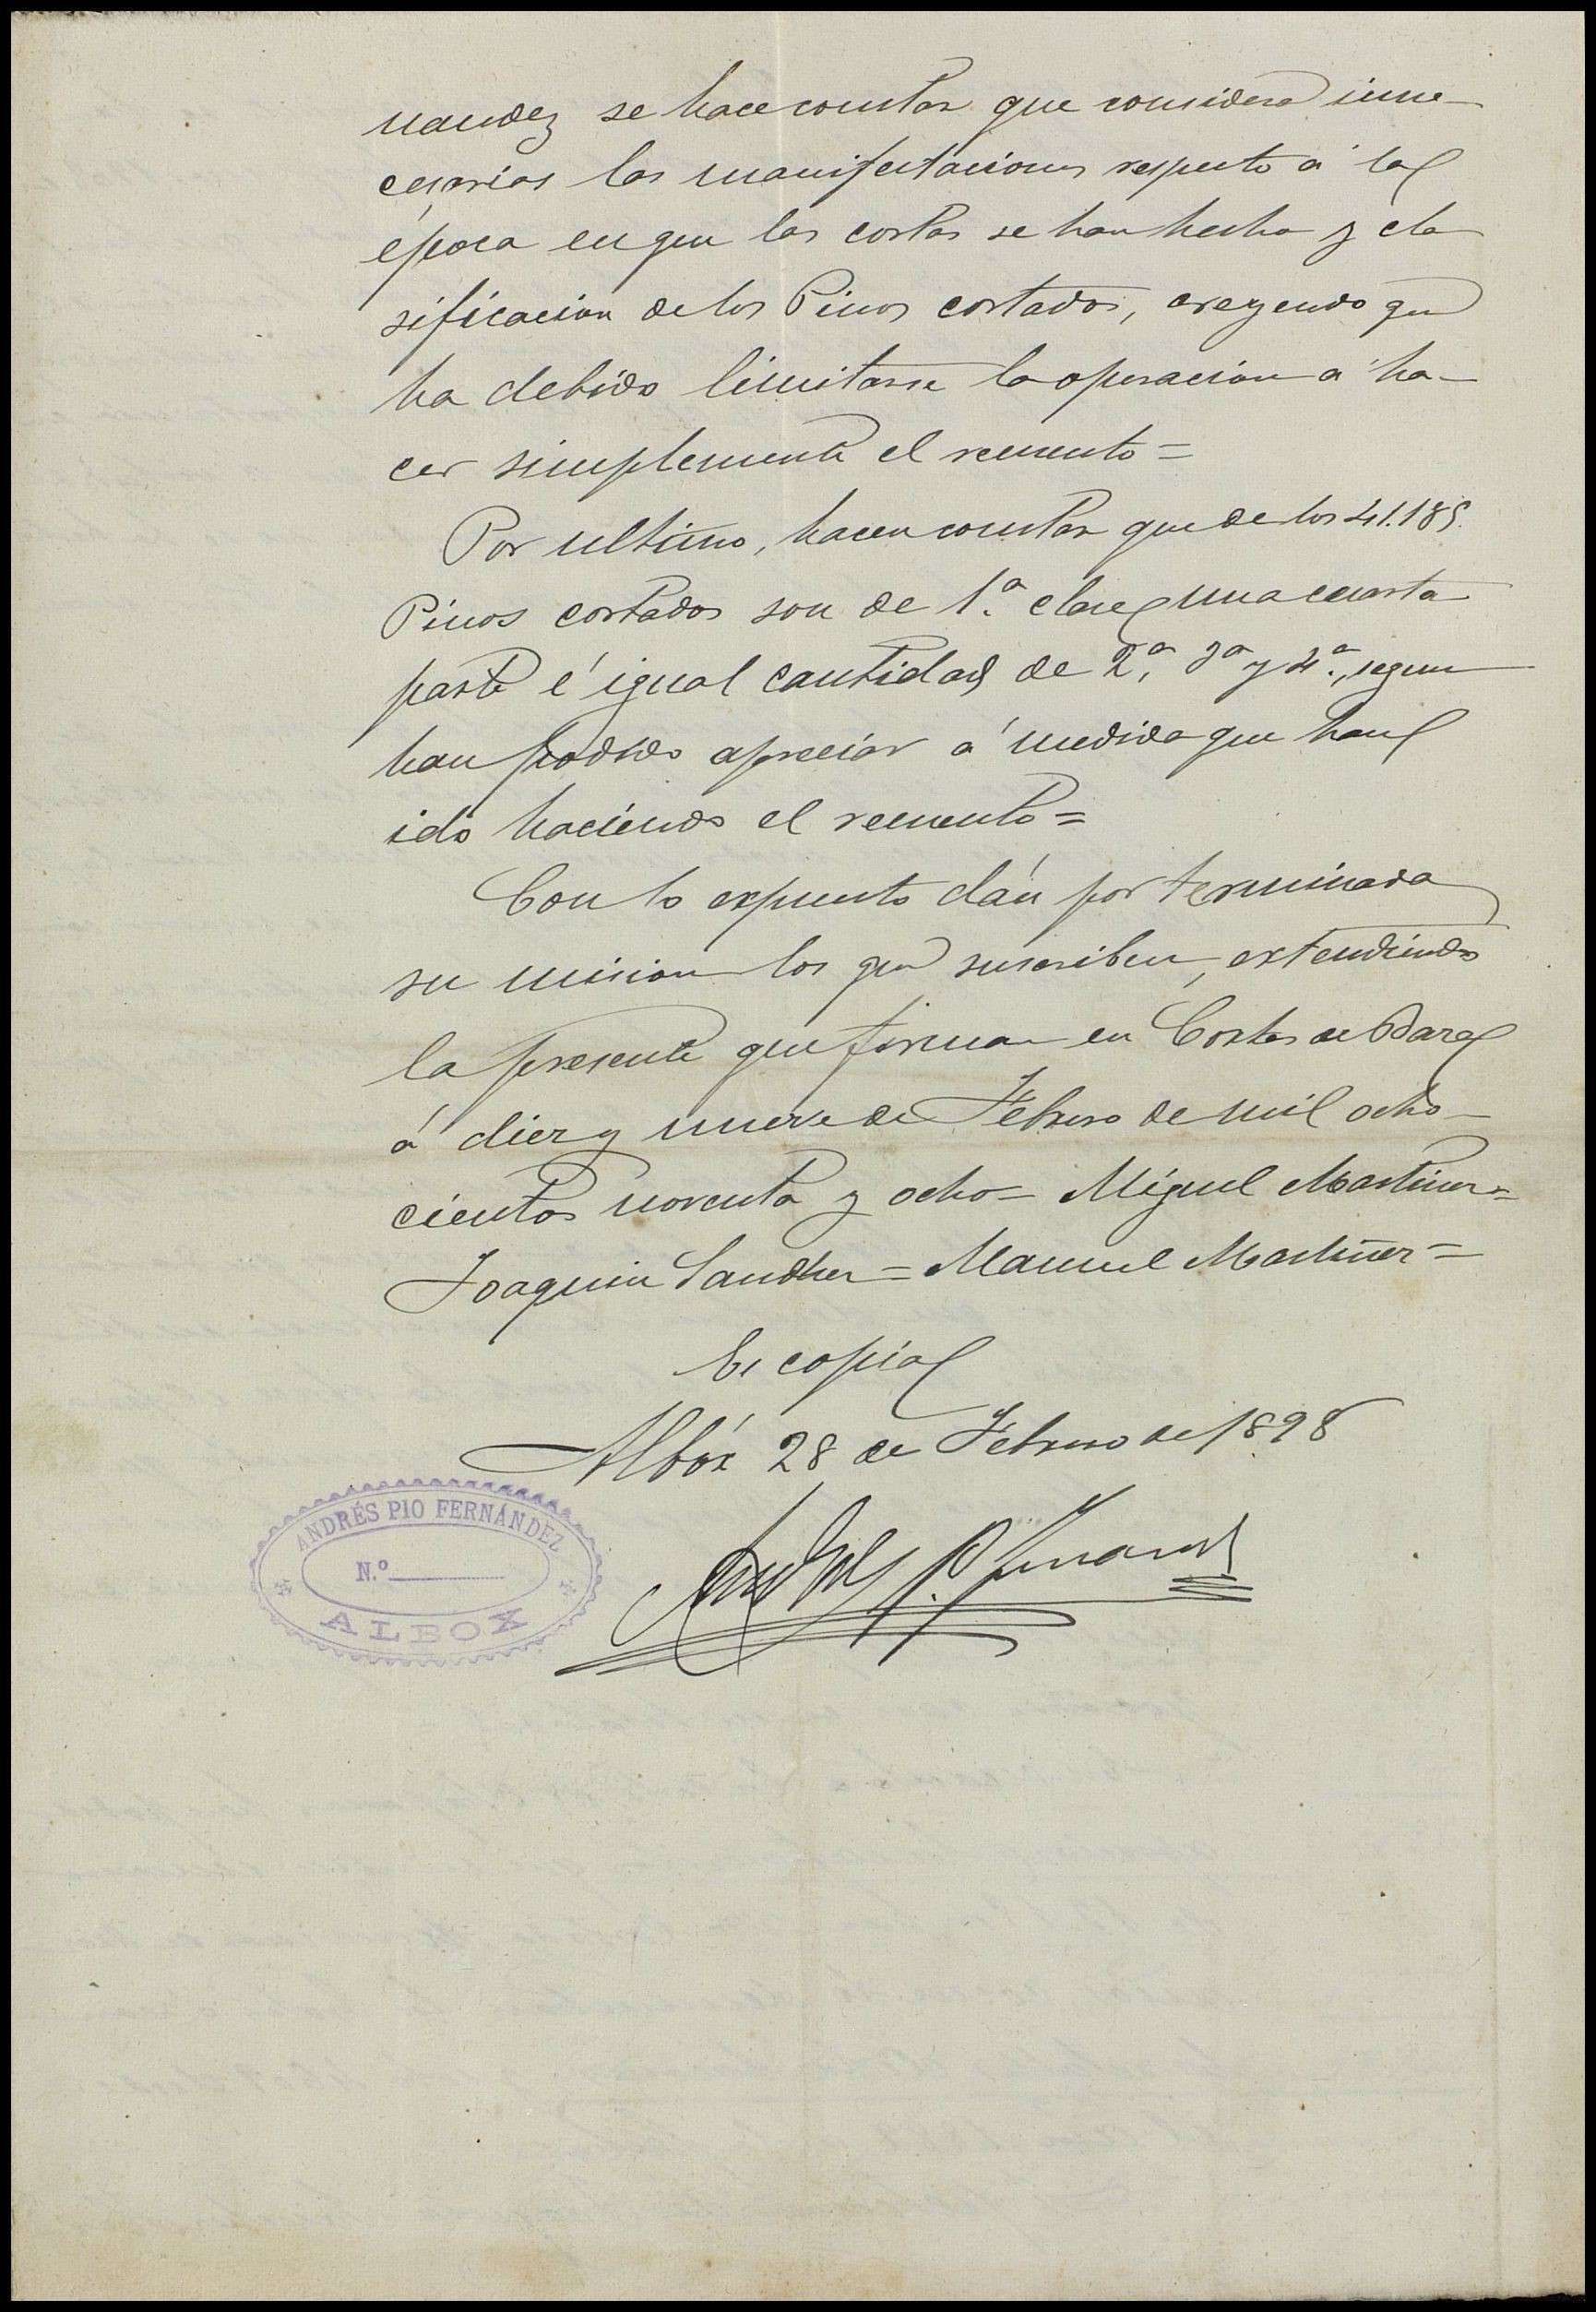 nandez se hace constar que considera inne-
cesarias las manifestaciones respecto á la
época en que las cortas se han hecho y cla
sificacion de los Pinos cortados, creyendo que
ha debido limitarse la operacion á ha-
cer simplemente el recuento=
Por ultimo, hacen constar que de los 41.185.
Pinos cortados son de 1.ª clase una cuarta
parte é igual cantidad de 2.ª, 3ª y 4.ª, segun
han podido apreciar á medida que han
ido haciendo el recuento=
Con lo expuesto dán por terminada
su mision los que suscriben, extendiendo
la presente que firman en Cortes de Baza
á diez y nueve de Febrero de mil ocho-
cientos noventa y ocho= Miguel Martinez=
Joaquin Sanchez= Manuel Martinez=
Es copia
Albóx 28 de Febrero de 1898
Andrés P. Fernandez
ANDRÉS PIO FERNÁNDEZ
N.º
ALBOX